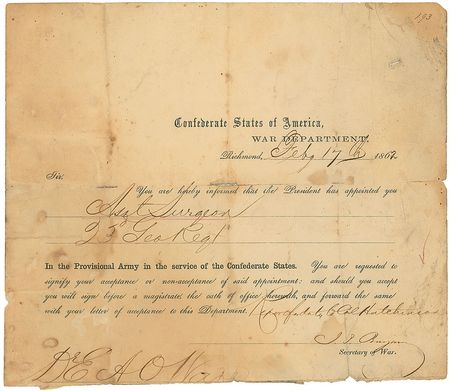 193
Confederate States of America,
WAR DEPARTMENT,
Richmond, Feby 17th 1862
Sir:
You are hereby informed that the President has appointed you
Asst Surgeon
23 Geo Regt
In the Provisional Army in the service of the Confederate States. You are requested to
signify your acceptance or non-acceptance of said appointment: and should you accept
you will sign before a magistrate, the oath of office herewith, and forward the same
with your letter of acceptance to this Department. Col Hutcherson
Secretary of War.
Dr E A O